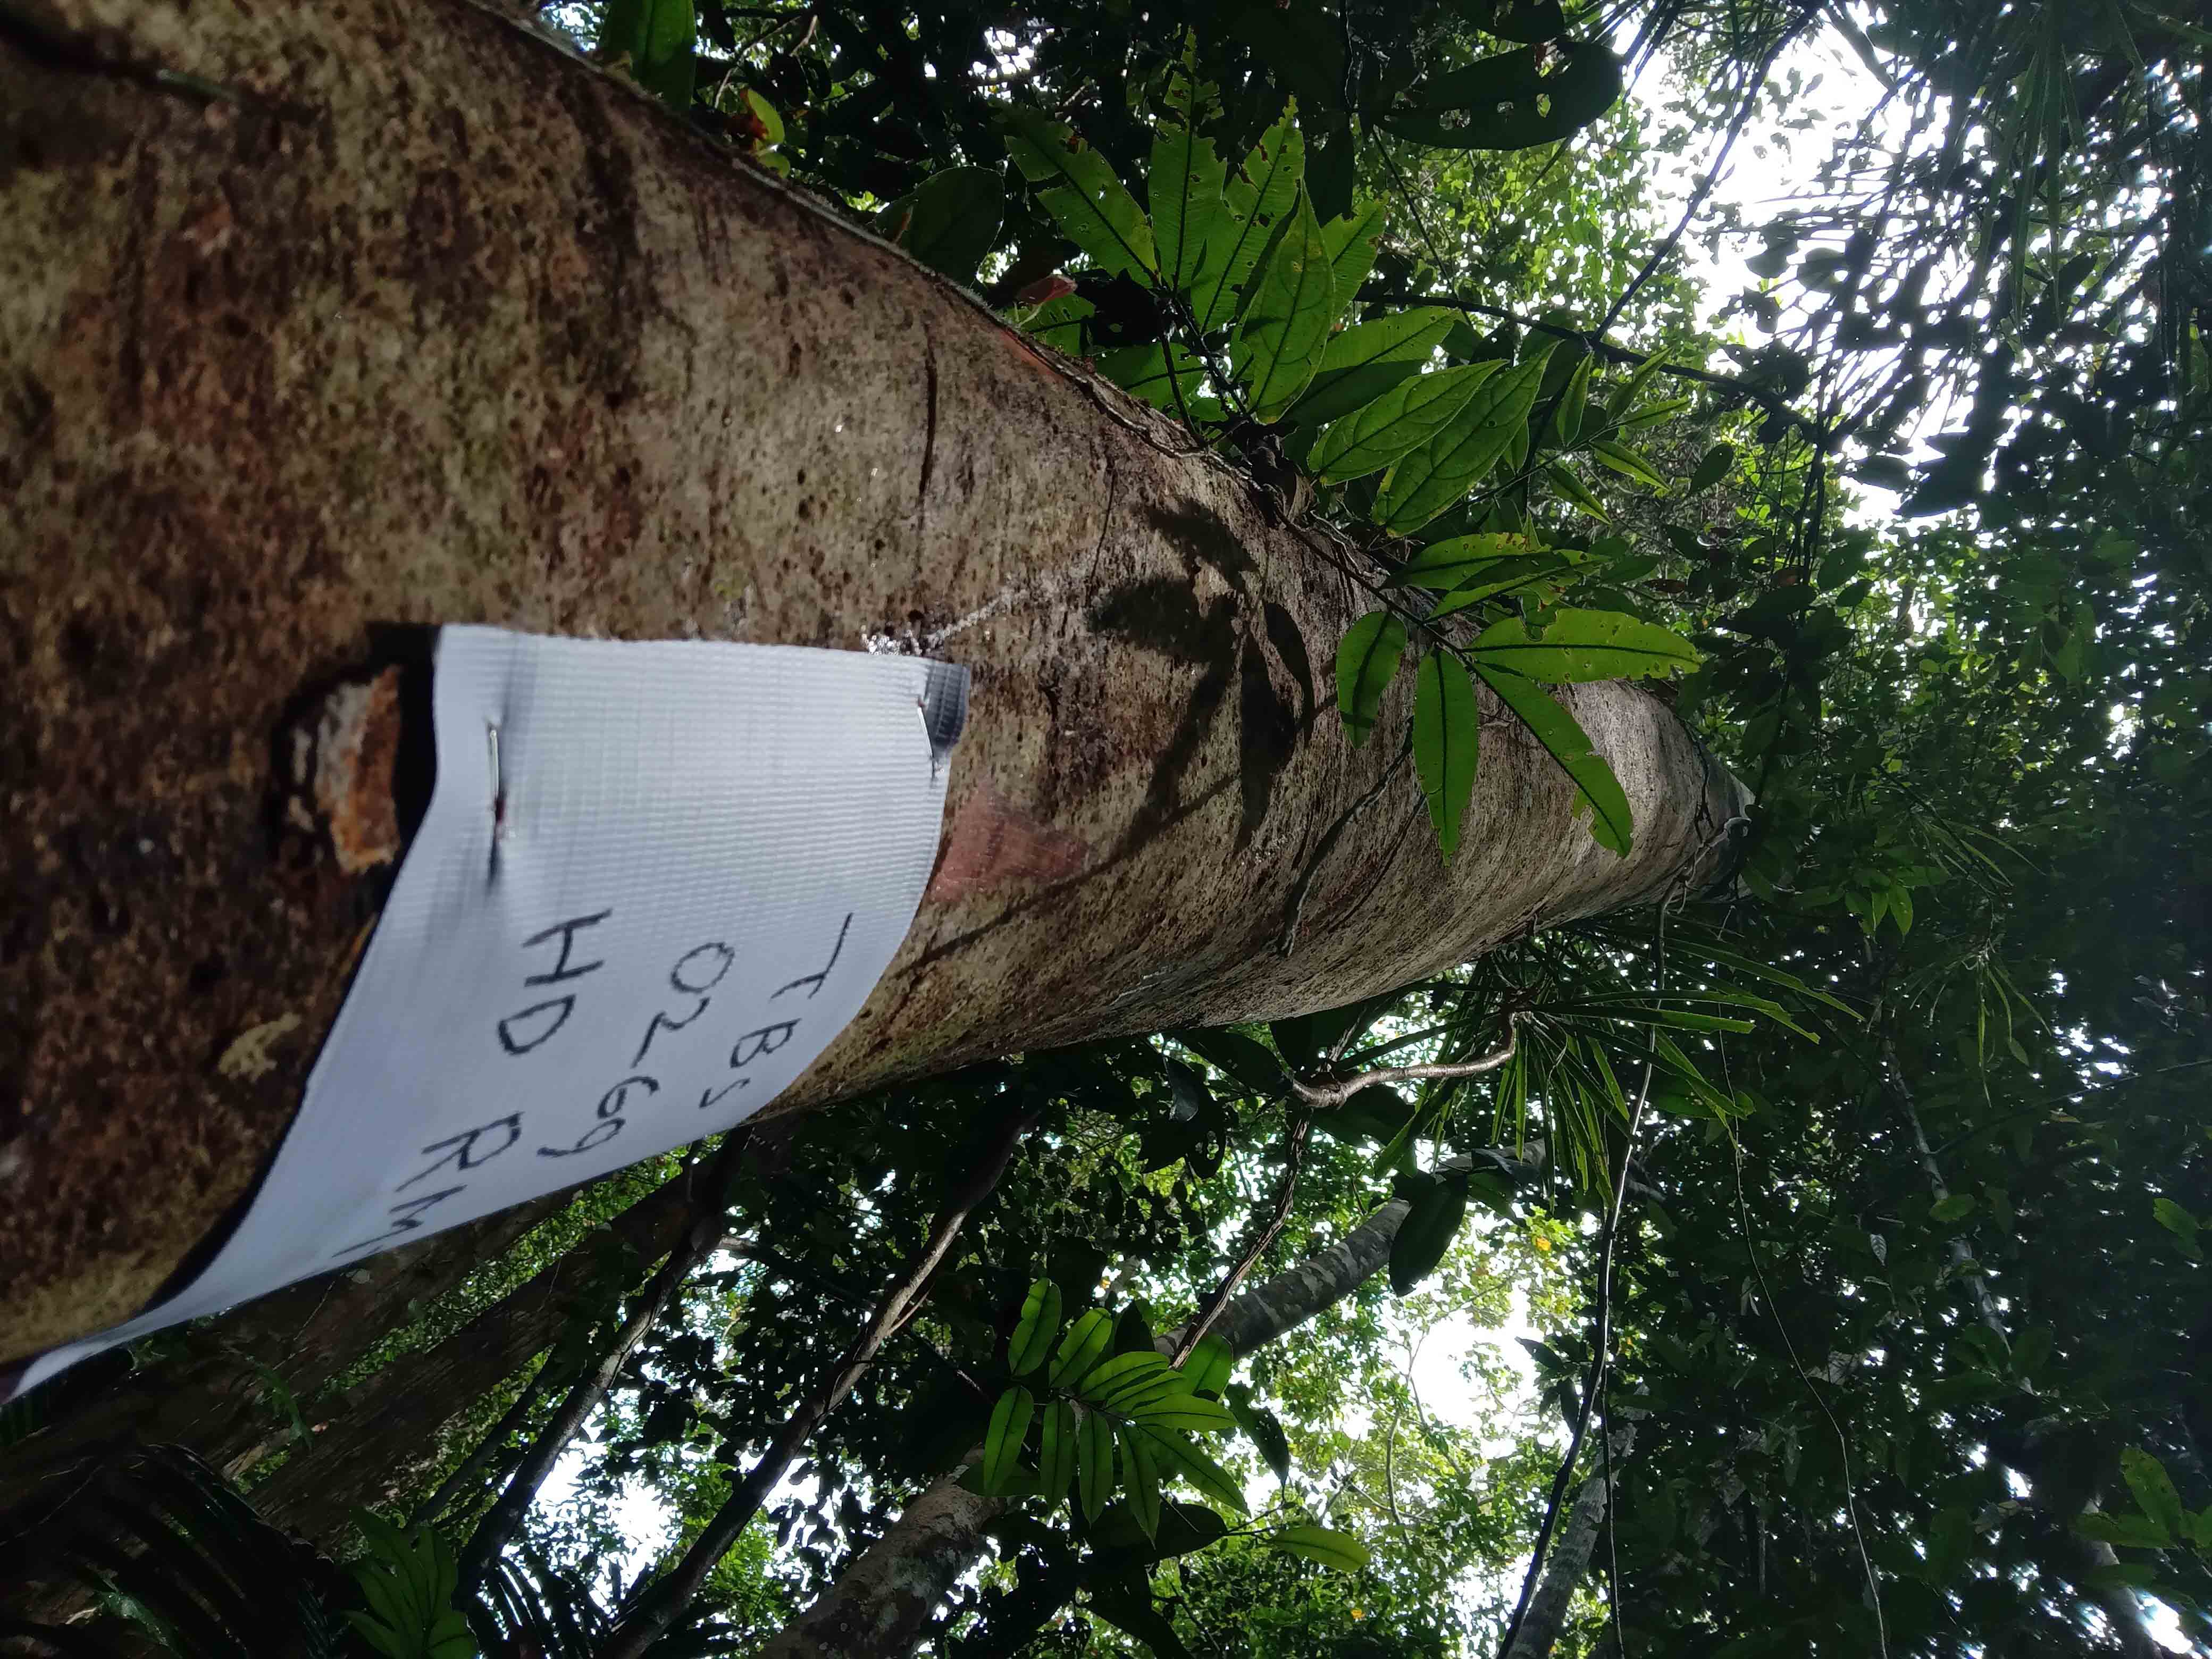 TBS
0269
HD RM